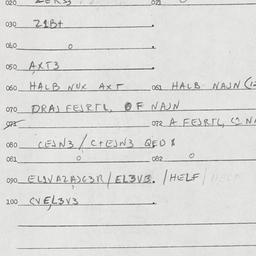 020 021
030 Z1B+
040 0
050 AXT3
060 HALB NUX AXT 061 HALB NAJN (1
070 DRAJ FEJRTL, OF NAJN
072 A FEJRTL,
080 CEJN3 / C+EJN3 QED
081 0 082 0
090 / EL3V3. / HELF /
100 CVEL3V3